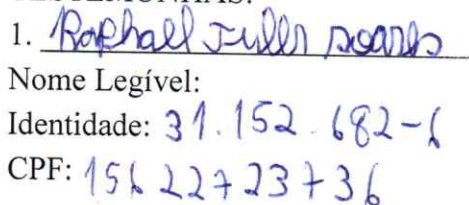 TESTEMUNHAS:
1. Raphael Juller Soares
Nome Legível:
Identidade: 31.152.682-6
CPF: 156 227 237 36